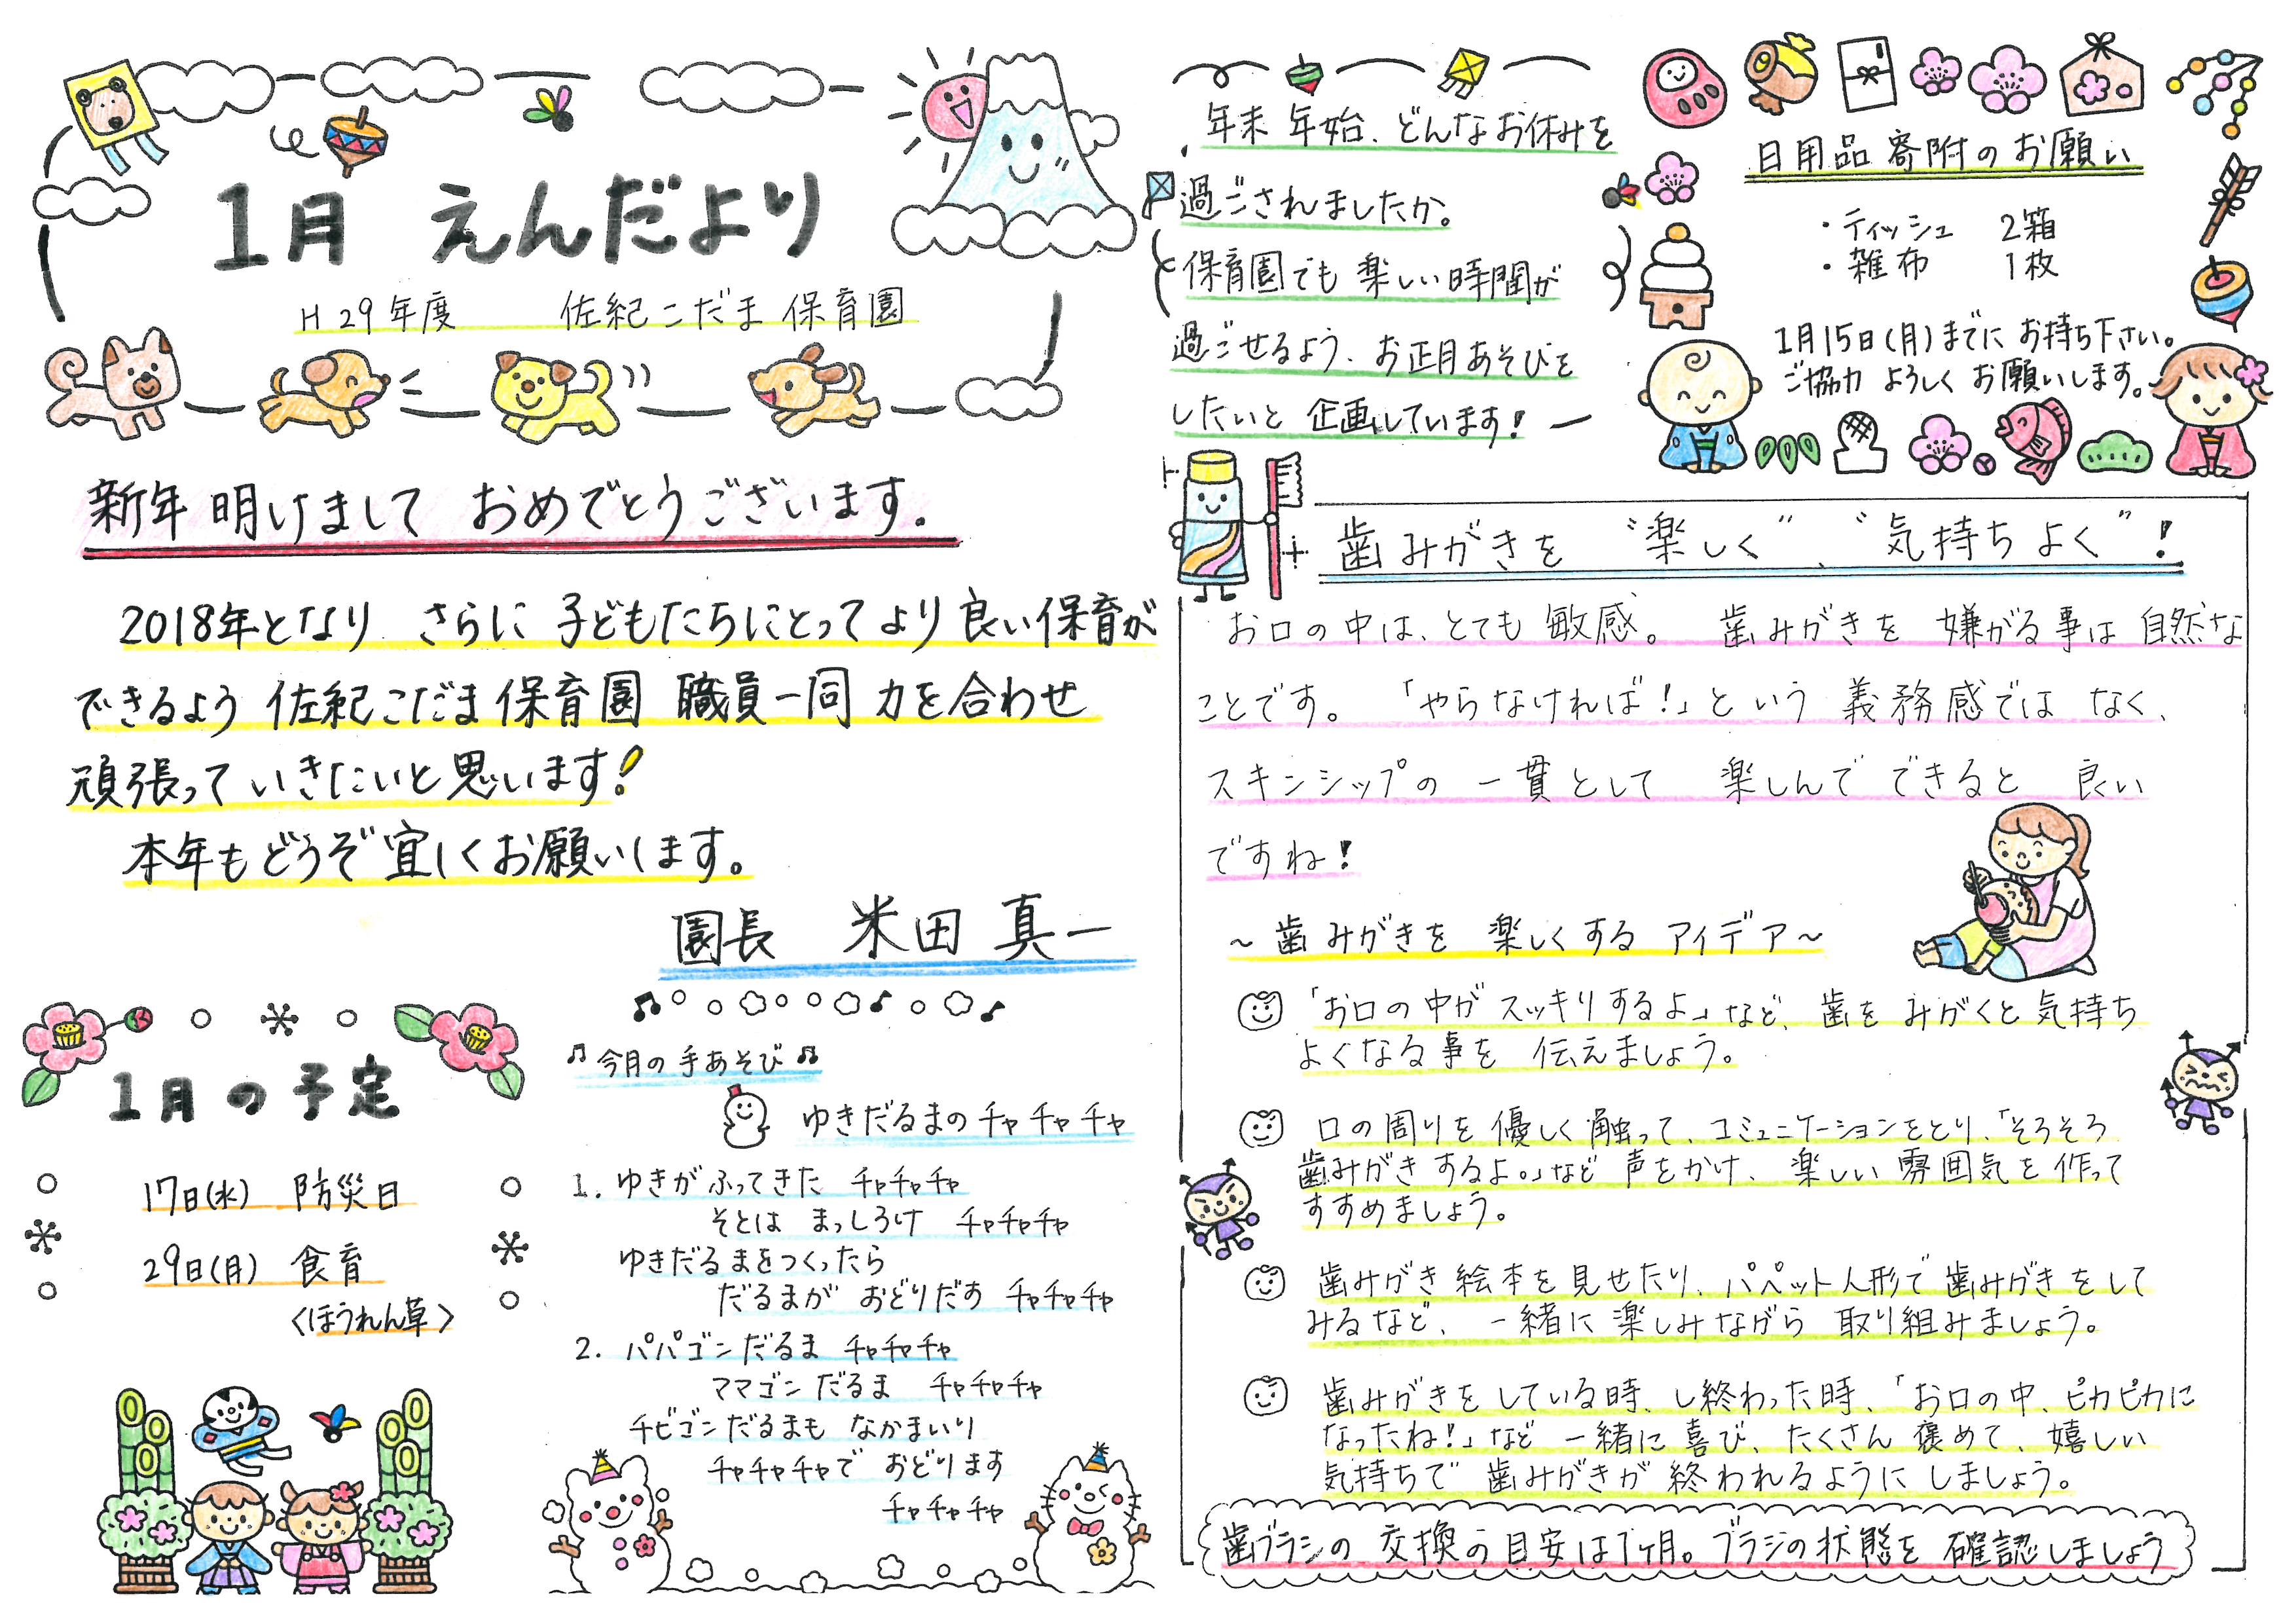 1月 えんだより
H29年度 佐紀こだま保育園
新年明けまして おめでとうございます。
2018年となり さらに 子どもたちにとって より良い保育が
できるよう 佐紀こだま保育園 職員一同 力を合わせ
頑張って いきたいと思います!
本年もどうぞ宜しくお願いします。
園長 米田 真一
1月の予定
17日(水) 防災日
29日(月) 食育
〈ほうれん草〉
♫今月の手あそび♫
ゆきだるまの チャチャチャ
1. ゆきが ふってきた チャチャチャ
そとは まっしろけ チャチャチャ
ゆきだるまをつくったら
だるまが おどりだす チャチャチャ
2. パパゴンだるま チャチャチャ
ママゴンだるま チャチャチャ
チビゴンだるまも なかまいり
チャチャチャで おどります
チャチャチャ
年末年始、どんなお休みを
過ごされましたか。
保育園でも 楽しい時間が
過ごせるよう、お正月あそびを
したいと 企画しています!
日用品寄附のお願い
・ティッシュ 2箱
・雑布 1枚
1月15日(月)までに お持ち下さい。
ご協力 よろしく お願いします。
歯みがきを “楽しく”、“気持ちよく”!
お口の中は、とても 敏感。 歯みがきを 嫌がる事は 自然な
ことです。 「やらなければ!」という 義務感では なく、
スキンシップの 一貫として 楽しんで できると 良い
ですね!
~歯みがきを 楽しくする アイデア~
「お口の中が スッキリするよ」など、歯を みがくと 気持ち
よくなる事を 伝えましょう。
口の周りを 優しく 触って、コミュニケーションをとり、「そろそろ
歯みがきするよ。」など 声をかけ、楽しい 雰囲気を 作って
すすめましょう。
歯みがき絵本を見せたり、パペット人形で 歯みがきをして
みるなど、一緒に 楽しみながら 取り組みましょう。
歯みがきをしている時、し終わった時、「お口の中、ピカピカに
なったね!」など 一緒に 喜び、たくさん 褒めて、嬉しい
気持ちで 歯みがきが 終われるように しましょう。
歯ブラシの 交換の目安は1ヶ月。ブラシの状態を 確認しましょう